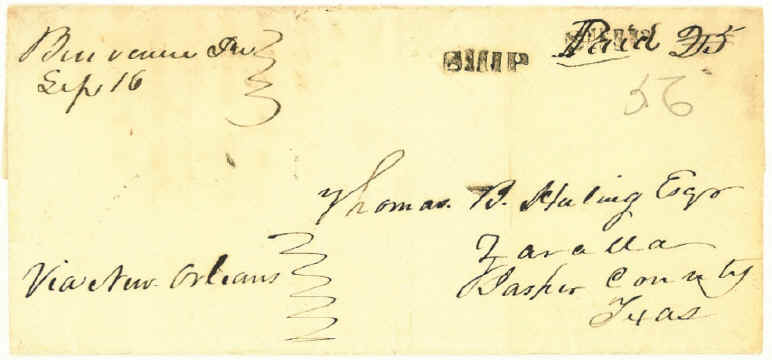 Sep 16
SHIP
Paid 25
56
Thomas B. Huling Esqr
Zavalla
Jasper County
Texas
Via New Orleans